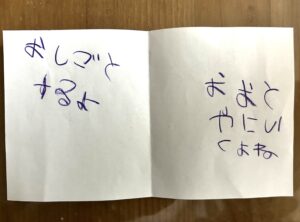 おしごと
するよ
おおと
やにい
くよね